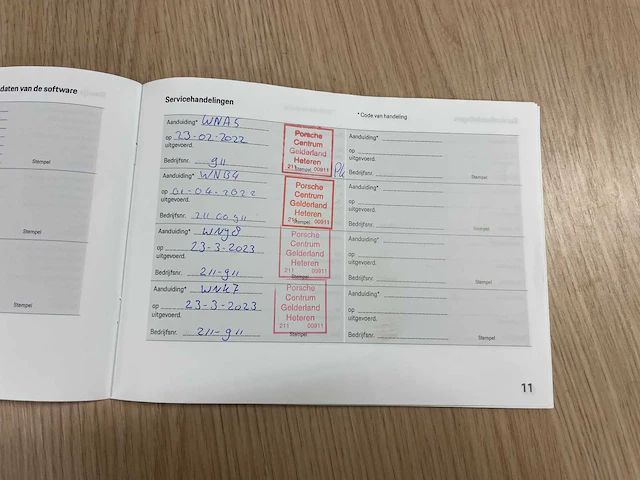 daten van de software
Stempel
Stempel
Stempel
Servicehandelingen
* Code van handeling
Aanduiding* WNA5
op 23-02-2022
uitgevoerd.
Bedrijfsnr. 911
Porsche
Centrum
Gelderland
Heteren
211 Stempel 00911
Aanduiding* WNB4
op 01-04-2022
uitgevoerd.
Bedrijfsnr. 211 00911
Porsche
Centrum
Gelderland
Heteren
211 Stempel 00911
Aanduiding* WNY8
op 23-3-2023
uitgevoerd.
Bedrijfsnr. 211-911
Porsche
Centrum
Gelderland
Heteren
211 00911
Stempel
Aanduiding* WNK7
op 23-3-2023
uitgevoerd.
Bedrijfsnr. 211-911
Porsche
Centrum
Gelderland
Heteren
211 00911
Stempel
Aanduiding*
op
uitgevoerd.
Bedrijfsnr.
Stempel
Aanduiding*
op
uitgevoerd.
Bedrijfsnr.
Stempel
Aanduiding*
op
uitgevoerd.
Bedrijfsnr.
Stempel
Aanduiding*
op
uitgevoerd.
Bedrijfsnr.
Stempel
11